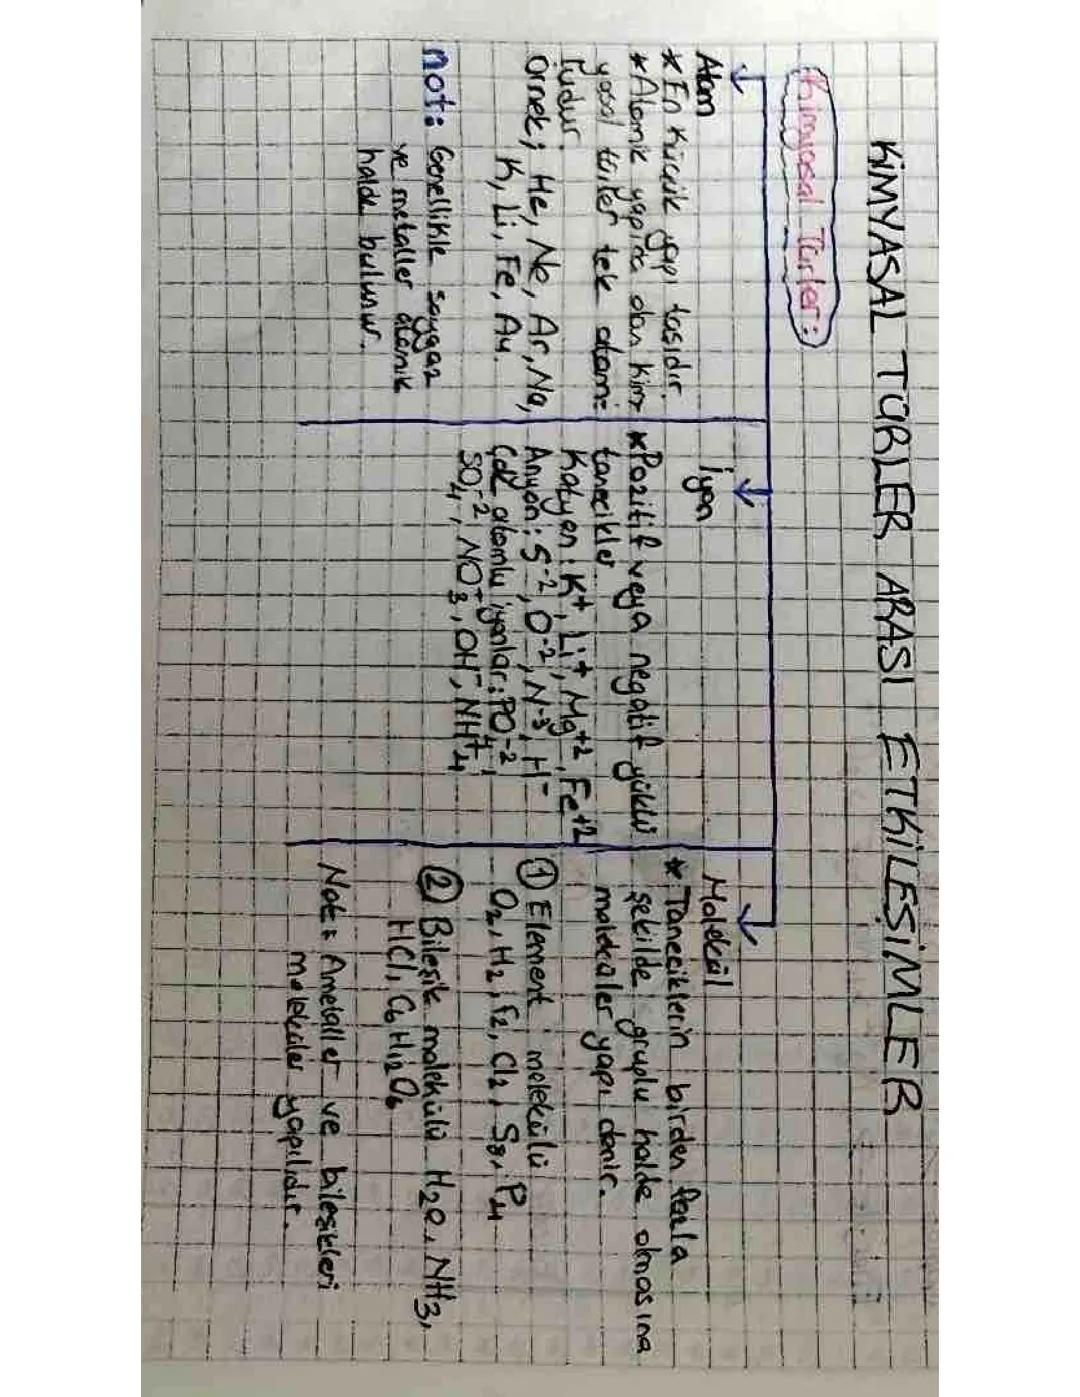 KİMYASAL TÜRLER ARASI ETKİLEŞİMLER
Kimyasal Türler:
Atom
* En küçük yapı taşıdır.
* Atomik yapıda olan kim-
yasal türler tek atom-
ludur.
Örnek; He, Ne, Ar, Na,
K, Li, Fe, Au.
not: Genellikle soygaz
ve metaller atomik
halde bulunur.
İyon
* Pozitif veya negatif yüklü
tanecikler.
Katyon: K+, Li+, Mg+2, Fe+2
Anyon: S-2, O-2, N-3, H-
Çok atomlu iyonlar: PO4-2,
SO4-2, NO3-, OH-, NH4+
Molekül
* Taneciklerin birden fazla
şekilde gruplu halde olmasına
moleküler yapı denir.
① Element molekülü
O2, H2, F2, Cl2, S8, P4
② Bileşik molekülü H2O, NH3,
HCl, C6H12O6
Not: Ametaller ve bileşikleri
moleküler yapılıdır.